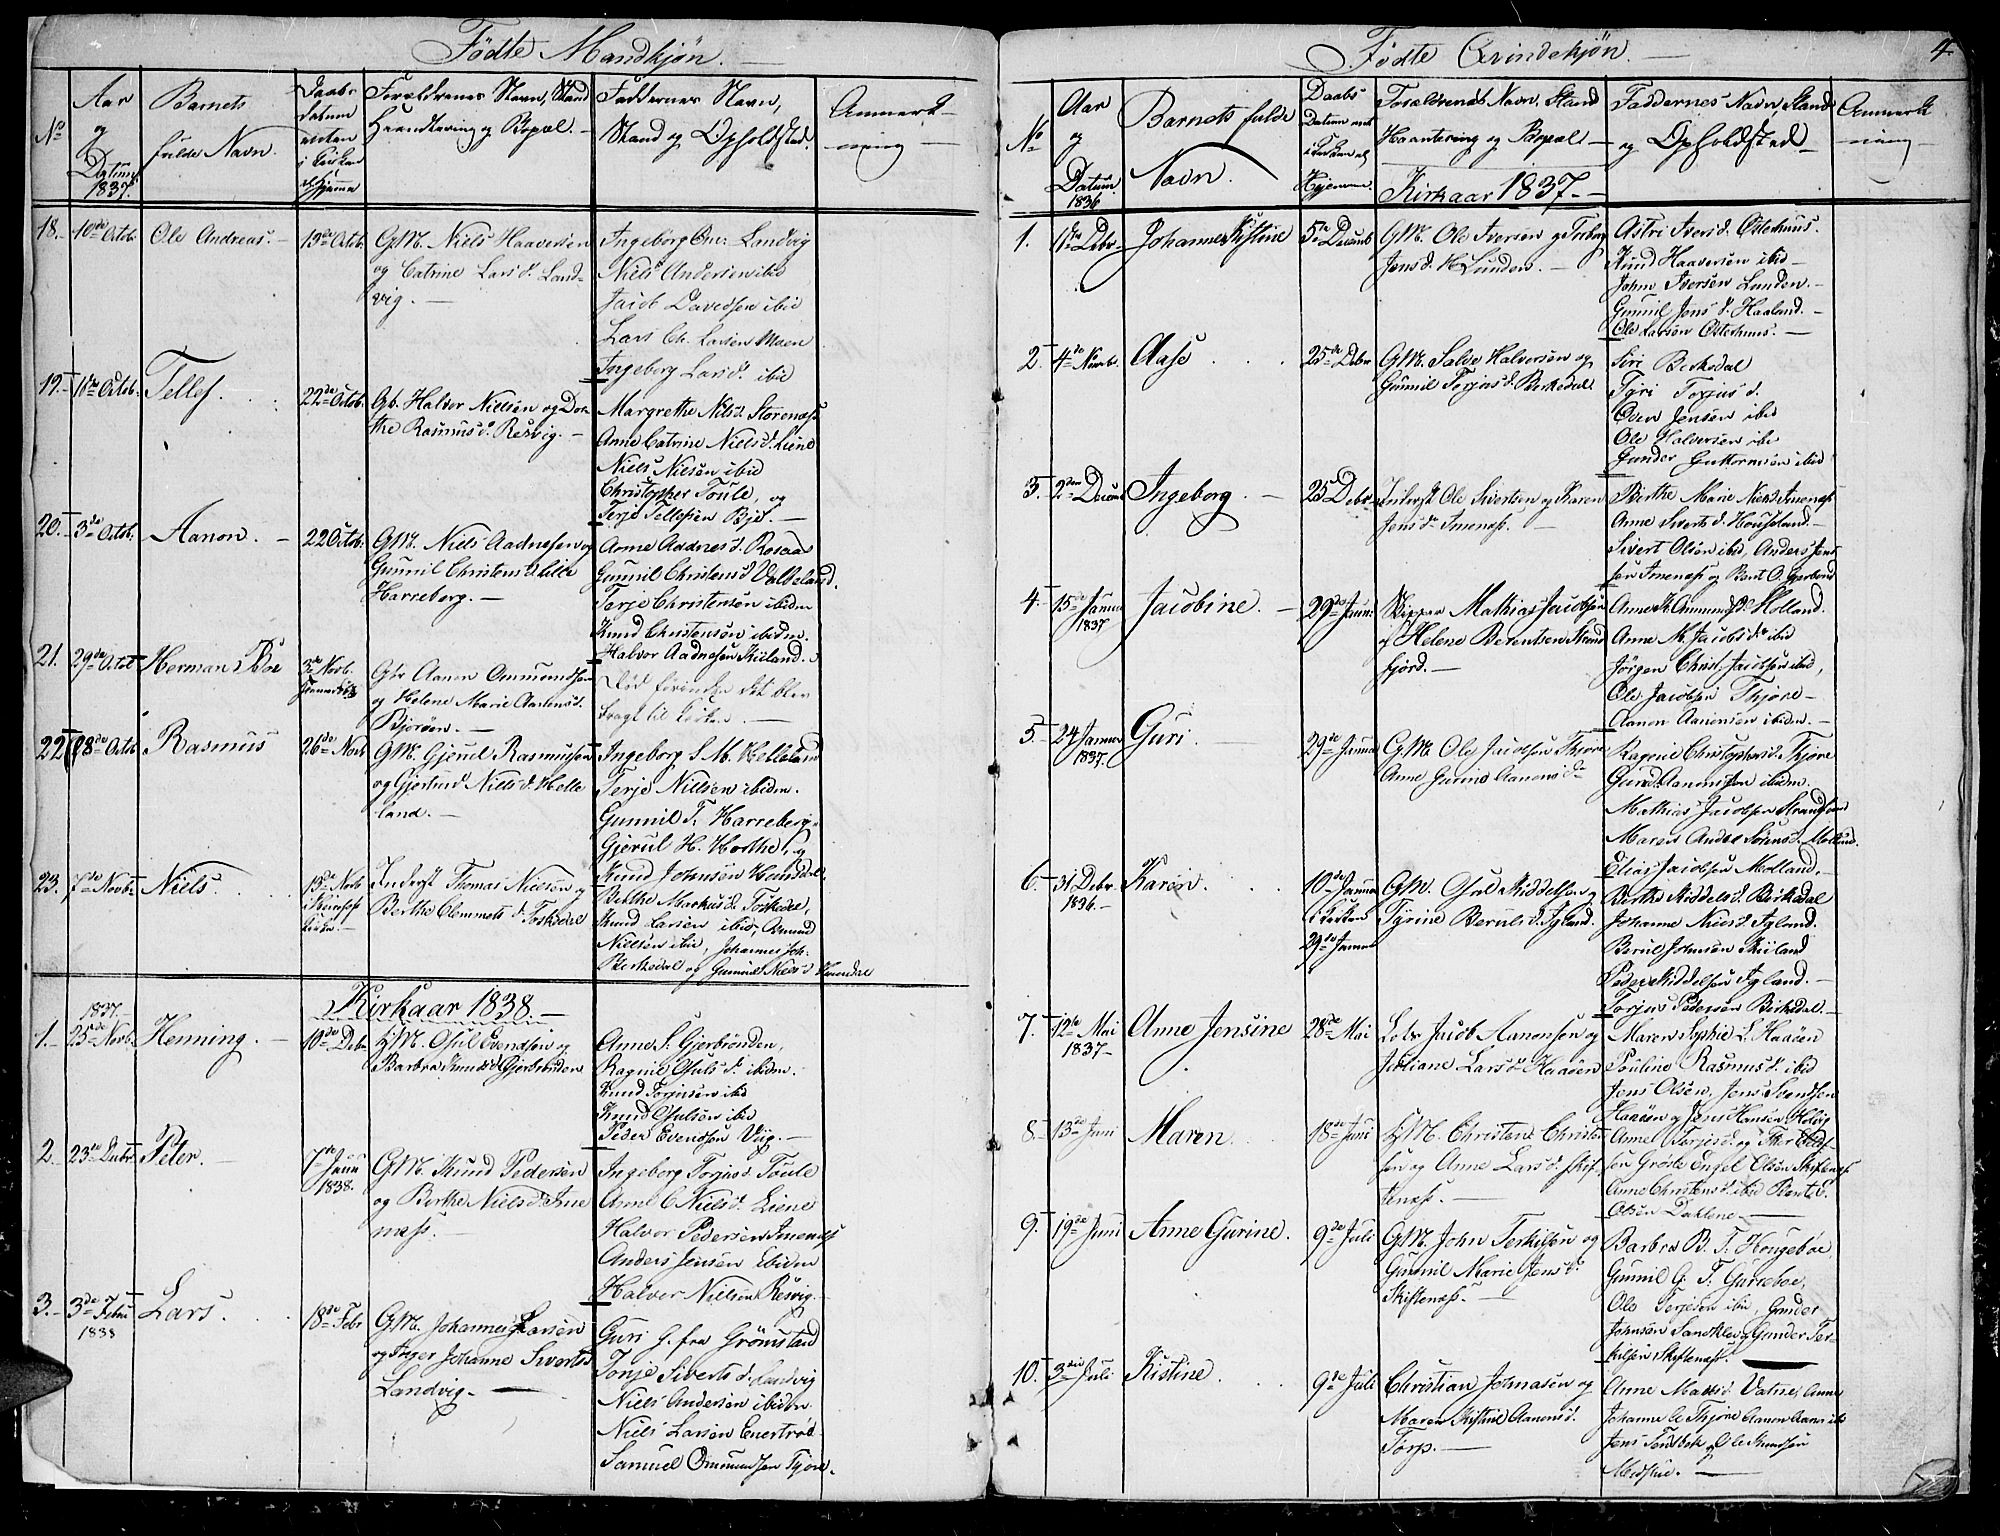 Fødte Mandkjøn.
No
Aar
og
Datum
1837.
Barnets
fulde Navn.
Daabs
datum
enten
i Kirken
el. hjemme
Forældrenes Navn, Stand
Haandtering og Bopæl.
Faddernes Navn,
Stand og Opholdsted.
Anmærk-
ning
18. 10de Octob. Ole Andreas. 15de Octob.
GM. Niels Haaversen
og Catrine Larsd. Land-
vig.
Ingeborg Landvig
Niels Andersen ibid
Jacob Davidsen ibid
Lars Ch. Larsen Moen
Ingeborg Larsd. ibid
19. 11de Octob. Tellef. 22de Octob.
Gb. Halvor Nielsen og Dor
the Rasmusd. Resvig.
Margrethe Nilsd. Storenæs
Anne Catrine Nielsd. Liene
Niels Nielsen ibid
Christopher Toule, og
Terje Tellefsen Bje.
20. 3de Octob. Aanon. 22 Octob.
GM. Niels Aadnesen og
Gunnil Christensd. Lille
Harreberg.
Anne Aadnesd. Rosaas
Gunnil Christensd Valdeland.
Terje Christensen ibidem
Knud Christensen ibidem.
Halvor Aadnesen Kiland.
21. 29de Octob Herman Boe 3de Novb.
Gbr Aanon Ommundsen
og Helene Marie Aastensd.
Bjorøen.
Død forinden det blev
bragt til Kirken.
22 28de Octob Rasmus 26de Novb
GM. Gjeruil Rasmusen
og Gjertrud Nielsd. Helle
land.
Ingeborg S. M. Helleland
Terje Nielsen ibidem.
Gunnil T. Harreberg
Gjerul H. Horthe, og
Knud Johnsen Hunddal
23. 7de Novbr Niels. 15de Novb
Inderst Thomas Nielsen og
Berthe Clemmetsd. Toskedal
Berthe Markusd. Toskedal,
Knud Larsen ibid, Osmund
Nielsen ibid, Johannes Joh.
Berkedal og Gunnild Nielsd. Hunddal
Kirkaar 1838.
1837.
1. 25de Novb. Henning. 10de Debr
GM. Osul Evendsen og
Barbra Knudsd. Gjerbrønden
Anne S. Gjerbrønden,
Ragnil Osulsd. ibidem.
Knud Torjusen ibid
Knud Osulsen ibid
Peder Evendsen Viig.
2. 23de Debr Peter. 7de Janu
1838.
GM. Knud Pedersen
og Berthe Nielsd. Ime
næss.
Ingeborg Torjusd. Toule
Anne C Nielsd. Liene
Halvor Pedersen Imenæs
Anders Jensen ibidem
Halvor Nielsen Resvig.
3. 3de Febru
1838
Lars. 18de Febr
GM. Johannes Larsen
og Inger Johanne Sivertsd
Landvig.
Guri G. fra Grømstad
Tonje Sivertsd. Landvig
Niels Andersen ibidem
Niels Larsen Enertrød
Samuel Ommundsen Tjore.
Fødte Qvindekjøn.
4
No
Aar
og
Datum
1836
Barnets fulde
Navn.
Daabs
Datum enten
i Kirken el.
Hjemme
Forældrenes Navn, Stand
Haantering og Bopæl
Kirkaar 1837.
Faddernes Navn Stand
og Opholdsted
Anmærk
ning
1. 1ste Debr. Johanne Kistine 5te Decemb
GM. Ole Iversen og Torborg
Jensd. H Lunden.
Astri Iversd. Osterhuus.
Knud Haaversen ibid
John Iversen Lunden.
Gunnil Jensd. Haaland.
Ole Larsen Osterhuus.
2. 4de Novb. Aase 25de Debr
GM. Salve Halversen og
Gunnil Torjusd. Berkedal
Siri Berkedal
Tyri Torjusd.
Even Jensen ibid
Ole Halversen ibid
Gunder Guttormsen ibid
3. 2den Decemb Ingeborg. 25 Debr
Inderst Ole Sivertsen og Karen
Jensd Imenæss.
Berthe Marie Nielsd Imenæs
Anne Sivertsd. Houseland.
Sivert Olsen ibid, Anders Jen
sen Imenæss og Bent O. Gjerbrond
4. 15de Janua
1837
Jacobine. 29de Janu
Skipper Mathias Jacobsen
og Helene Berentsen Strand
fjord.
Anne K. Ommundsd Holland.
Anne M. Jacobsd. ibid
Jørgen Christ. Jacobsen ibid,
Ole Jacobsen Thjore
Aanon Aanonsen ibidem.
5. 24 Janua
1837.
Guri. 29de Janua
G.M. Ole Jacobsen Thjore
Anne Gurine Aanonsd
Ragnil Christophersd. Thjore
Gund. Aanonsen ibidem.
Mathias Jacobsen Strandfjord
Maren Andrea Sørensd. Molland.
Elias Jacobsen Molland.
6. 31 Debr.
1836.
Karen. 10de Janua
i Kirken
29de Janua
GM. Osul Kiddelsen og
Tyrine Berulsd. Igland.
Berthe Kiddelsd. Berkedal
Johanne Nielsd. Igland.
Berul Johnsen Kiland
Peder Kiddelsen Igland.
Torjus Pedersen Berkedal.
7. 12te Mai
1837
Anne Jensine 28de Mai
Lods Jacob Aanonsen og
Juliane Larsd. Haaøen
Maren Sophie L. Haaøen
Pouline Rasmusd. ibid
Jens Olsen, Jens Svendsen
Haaøen og Jens Hansen Holvig
8. 13de Juni Maren. 18de Juni
GM. Christen Christen
sen og Anne Larsd. Skif
tenæss.
Anne Terjesd. og Ther Ellef
sen Grøsle Engel Olsen Skiftenæs
Anne Christensd. ibid Bent E.
Olsen Dahlene
9. 19de Juni Anne Gurine. 9de Juli
GM. John Terkilsen og
Gunnil Marie Jensd.
Skiftenæss.
Barbra B. T. Hougeboe,
Gunnil G. T. Gurreboe,
Ole Terjesen ibid, Gunder
Johnsen Landklev og Gunder Ter-
kilsen Skiftenæss.
10. 3die Juli Kistine 9de Juli
Christian Johnasen og
Maren Kistine Aanonsd.
Torp.
Anne Madsd. Vatne, Anne
Johanne A Thjore Aanon Aanons ibid
Jens Tendbek og Ole Knudsen